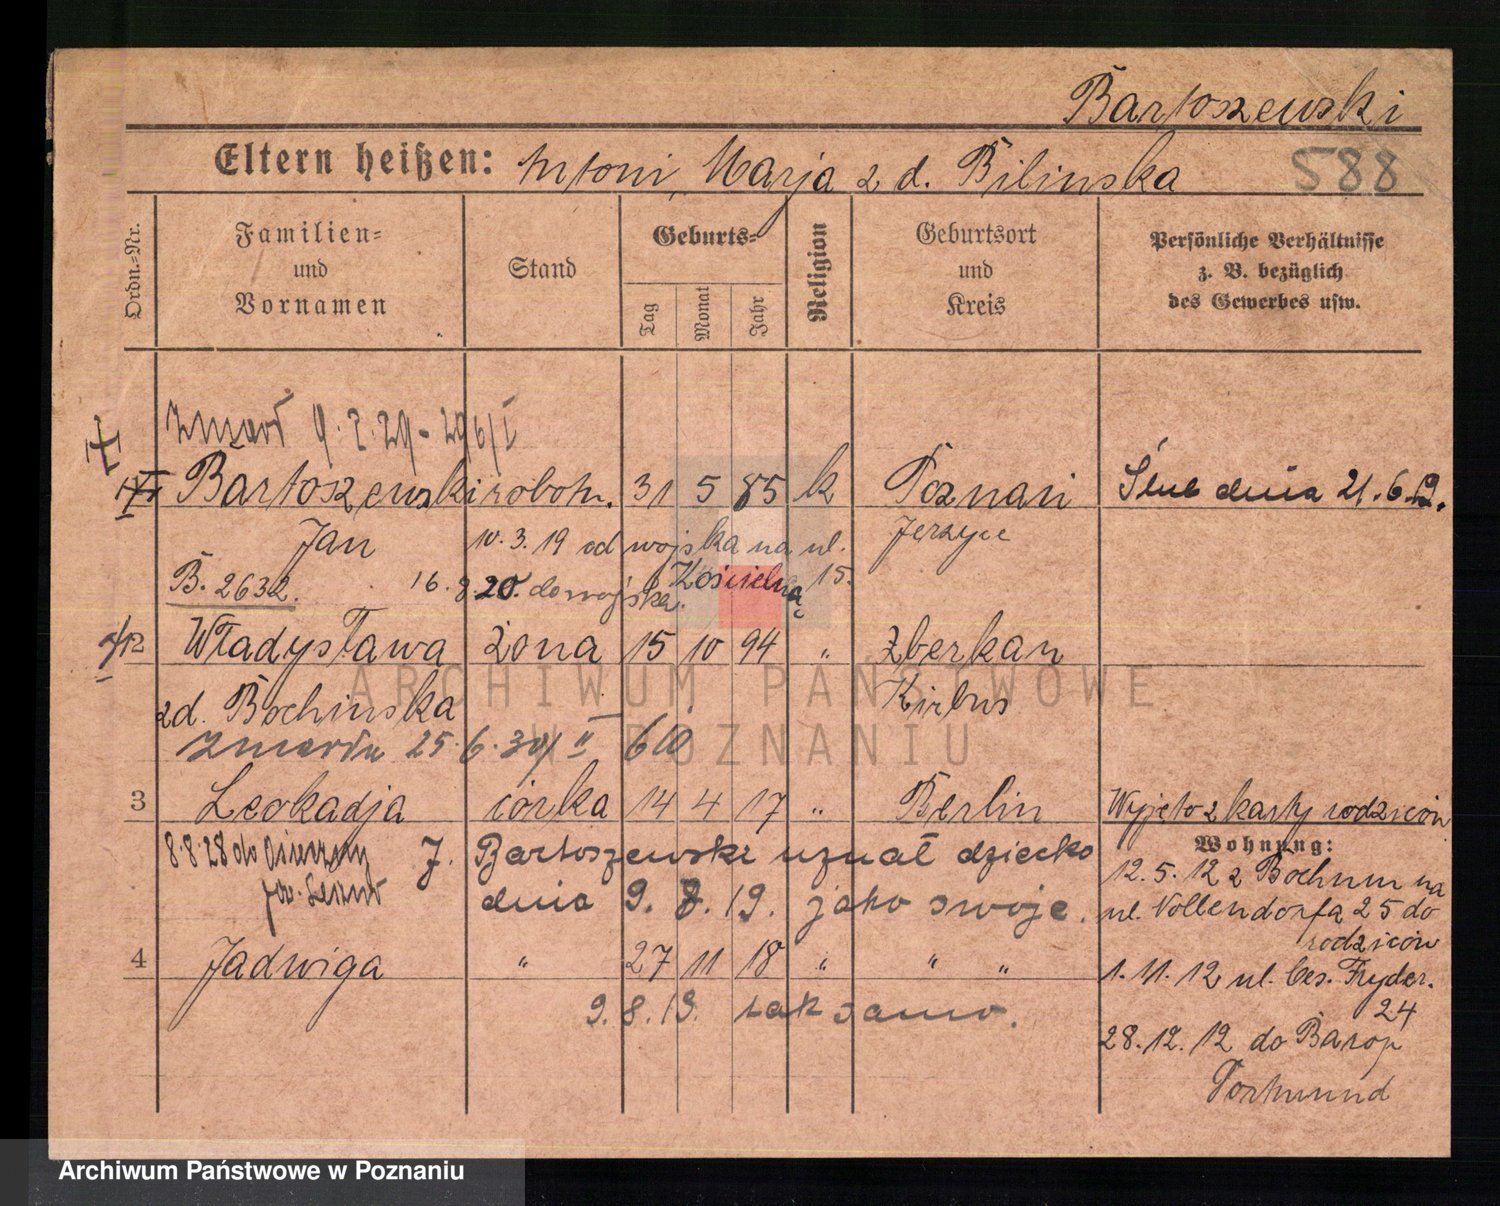 Bartoszewski
Eltern heißen: Antoni, Marja z d. Bilinska 588
Ordn.-Nr.
Familien- und Vornamen
Stand
Geburts-
Tag Monat Jahr
Religion
Geburtsort und Kreis
Persönliche Verhältnisse z. B. bezüglich des Gewerbes usw.
Zmarł 9.2.29 - 296/I
Bartoszewski robotn. 31 5 85 k Poznań Ślub dnia 21.6.19.
Jan 10.3.19 od wojska na ul. Jerzyce
Kościelną 15.
B. 2632. 16.8.20. do wojska.
2 Władysława żona 15 10 94 " Zberkan
zd. Bochinska
Zmarła 25.6.30/II 610
3 Leokadja córka 14 4 17 " Berlin Wyjęto z karty rodziców
8.8.28 do
J. Bartoszewski uznał dziecko
dnia 9.8.19. jako swoje.
4 Jadwiga " 27 11 18 " " "
9.8.19. tak samo.
Wohnung:
12.5.12 z Bochum na
ul. Vollendorfa 25 do
rodziców
1.11.12 ul. Ces. Fryder.
24
28.12.12 do Barop
Dortmund
ARCHIWUM PAŃSTWOWE
W POZNANIU
Archiwum Państwowe w Poznaniu